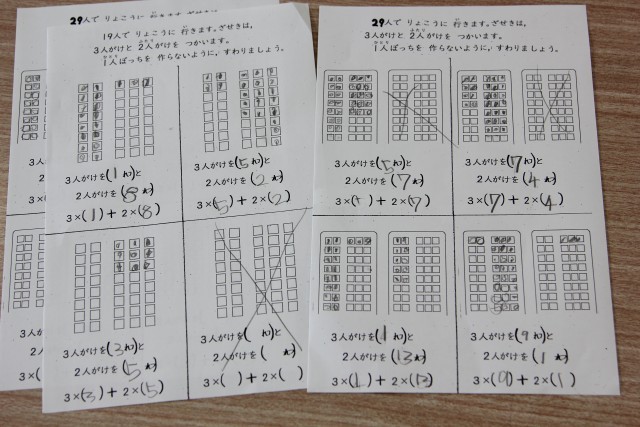 29人で りょこうに
19人で りょこうに 行きます。ざせきは、
3人がけと 2人がけを つかいます。
1人ぼっちを 作らないように、すわりましょう。
3人がけを(1 れつ)と
2人がけを(8 れつ)
3×(1)+2×(8)
3人がけを(5 れつ)と
2人がけを(2 れつ)
3×(5)+2×(2)
3人がけを(3 れつ)と
2人がけを(5 れつ)
3×(3)+2×(5)
3人がけを( れつ)と
2人がけを( れつ)
3×( )+2×( )
29人で りょこうに 行きます。ざせきは、
3人がけと 2人がけを つかいます。
1人ぼっちを 作らないように、すわりましょう。
3人がけを(5 れつ)と
2人がけを(7 れつ)
3×(5)+2×(7)
3人がけを(7 れつ)と
2人がけを(4 れつ)
3×(7)+2×(4)
3人がけを(1 れつ)と
2人がけを(13 れつ)
3×(1)+2×(13)
3人がけを(9 れつ)と
2人がけを(1 れつ)
3×(9)+2×(1)